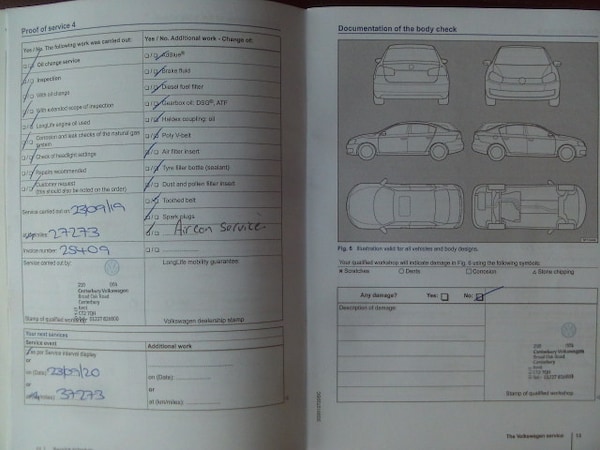 Proof of service 4
Yes / No. The following work was carried out:
Oil change service
Inspection
With oil change
With extended scope of inspection
LongLife engine oil used
Corrosion and leak checks of the natural gas system
Check of headlight settings
Repairs recommended
Customer request
(this should also be noted on the order)
Service carried out on: 23/09/19
miles: 27273
Invoice number: 25409
Service carried out by:
Canterbury Volkswagen
Broad Oak Road
Canterbury
Kent
CT2 7QH
Stamp of qualified workshop
Yes / No. Additional work - Change of:
AdBlue®
Brake fluid
Diesel fuel filter
Gearbox oil: DSG®, ATF
Haldex coupling: oil
Poly V-belt
Air filter insert
Tyre filler bottle (sealant)
Dust and pollen filter insert
Toothed belt
Spark plugs
Aircon Service
LongLife mobility guarantee:
Volkswagen dealership stamp
Your next services
Service event
Additional work
as per Service Interval Display
or
on (Date): 23/09/20
or
37273
on (Date):
or
at (km/miles):
Documentation of the body check
Fig. 6 Illustration valid for all vehicles and body designs.
Your qualified workshop will indicate damage in Fig. 6 using the following symbols:
× Scratches ○ Dents □ Corrosion △ Stone chipping
Any damage? Yes: No:
Description of damage:
Canterbury Volkswagen
Broad Oak Road
Canterbury
Kent
CT2 7QH
Stamp of qualified workshop
The Volkswagen service